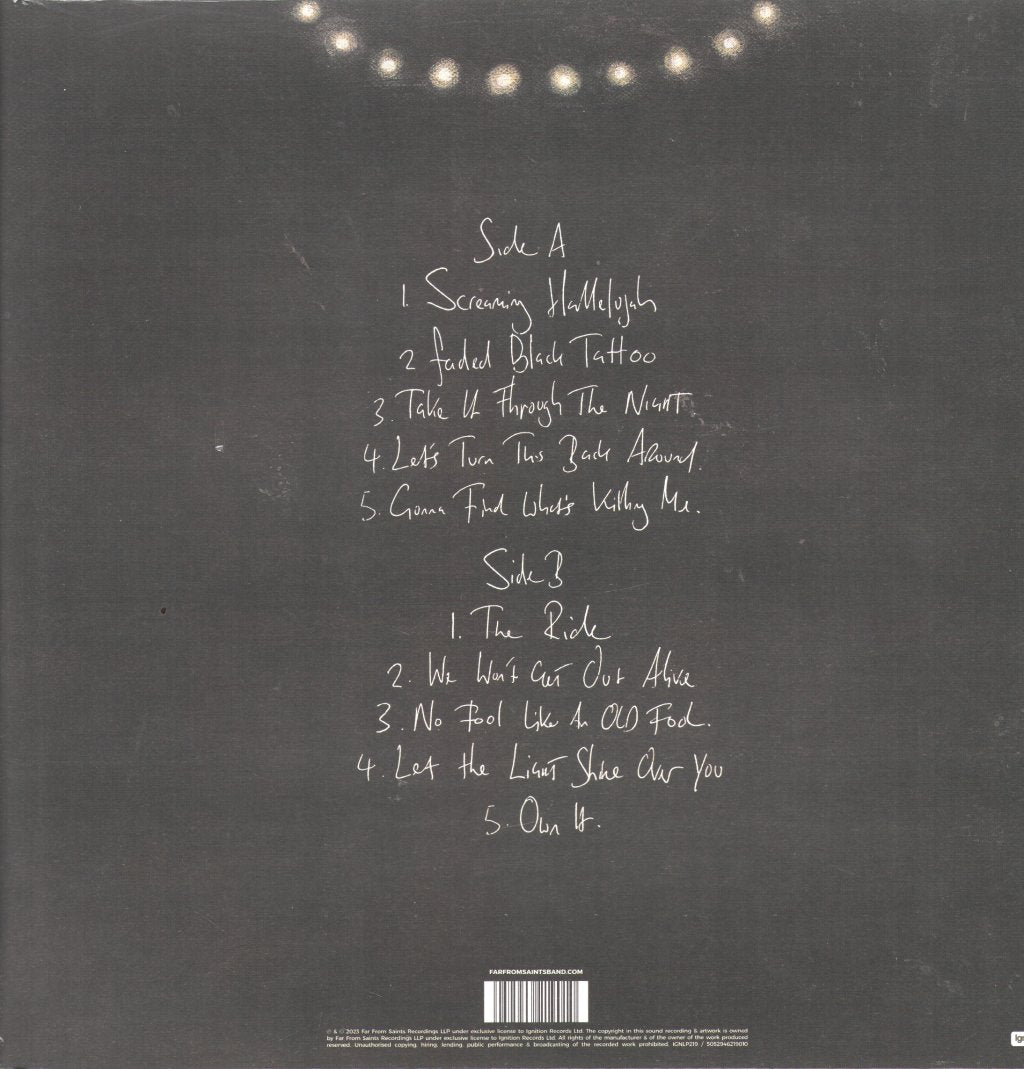 Side A
1. Screaming Hallelujah
2 Faded Black Tattoo
3. Take It Through The Night
4. Let's Turn This Back Around.
5. Gonna Find What's Killing Me.
Side B
1. The Ride
2. We Won't Get Out Alive
3. No Fool Like An OLD Fool.
4. Let the Light Shine Over You
5. Own It.
FARFROMSAINTSBAND.COM
℗ & © 2023 Far From Saints Recordings LLP under exclusive license to Ignition Records Ltd. The copyright in this sound recording & artwork is owned
by Far From Saints Recordings LLP under exclusive license to Ignition Records Ltd. All rights of the manufacturer & of the owner of the work produced
reserved. Unauthorised copying, hiring, lending, public performance & broadcasting of the recorded work prohibited. IGNLP219 / 5052946219010